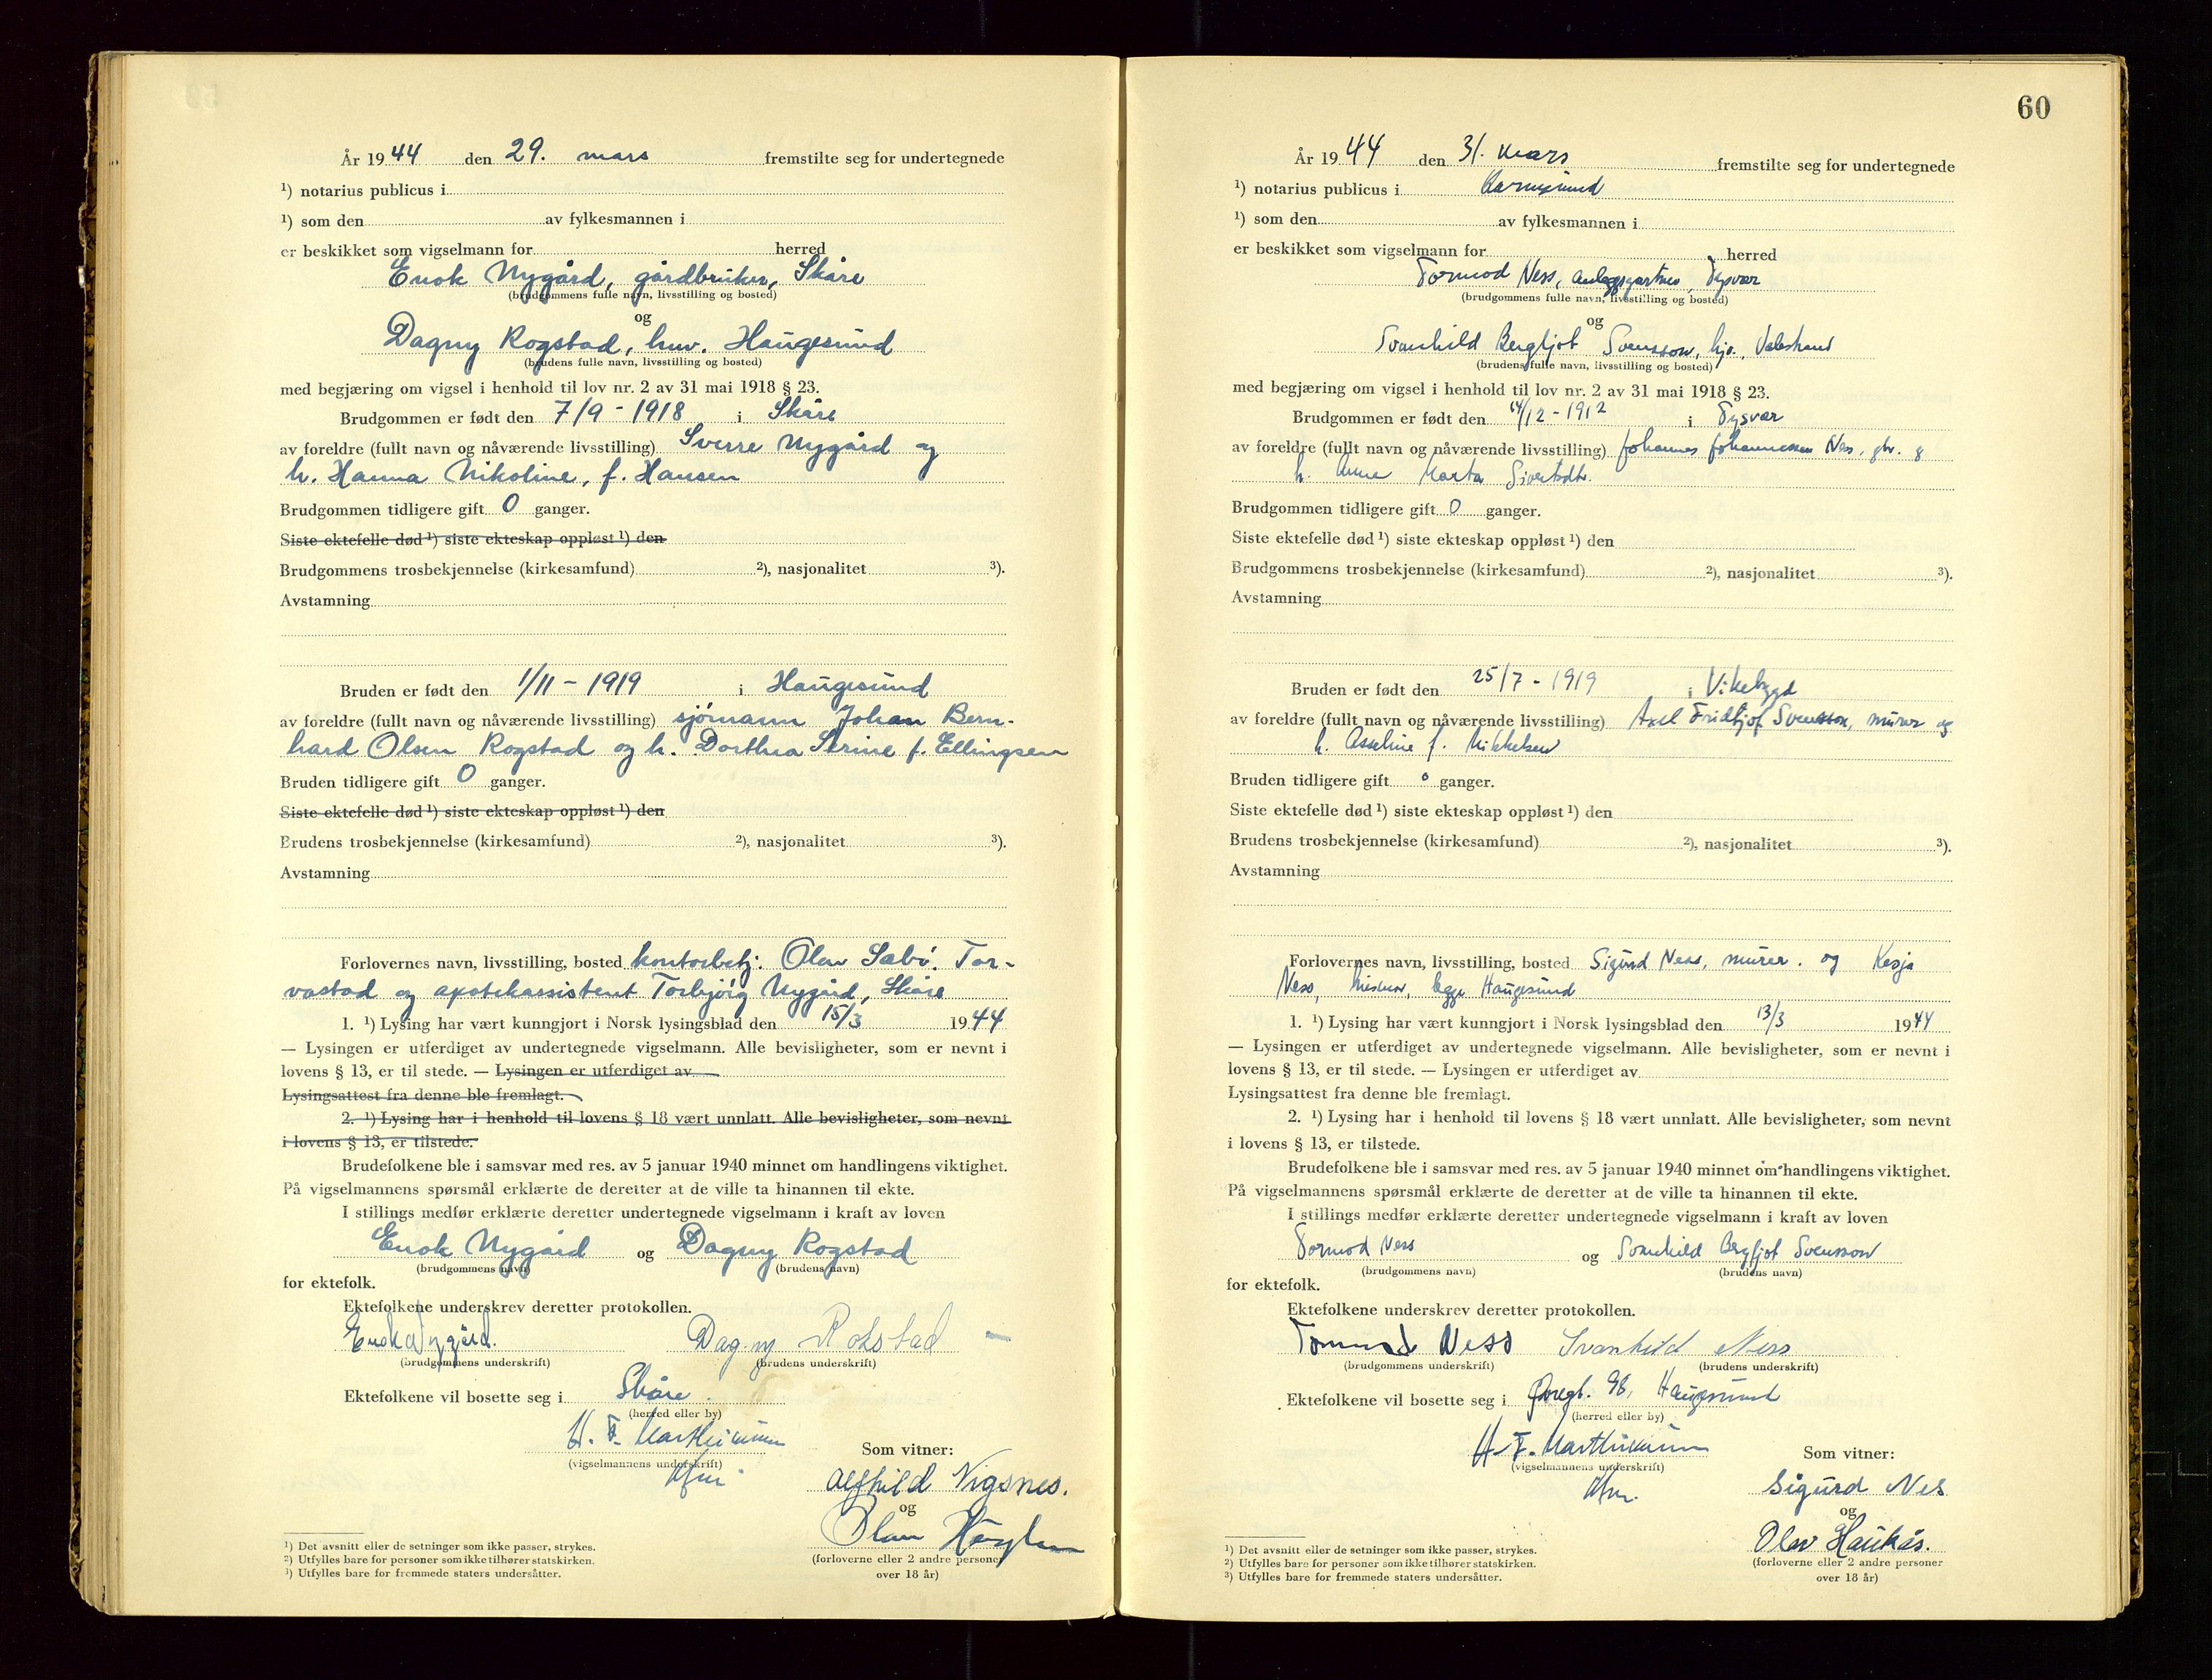 År 1944 den 29. mars fremstilte seg for undertegnede
¹) notarius publicus i
¹) som den av fylkesmannen i
er beskikket som vigselmann for herred
Enok Nygård, gårdbruker, Skåre
(brudgommens fulle navn, livsstilling og bosted)
og
Dagny Rogstad, huv. Haugesund
(brudens fulle navn, livsstilling og bosted)
med begjæring om vigsel i henhold til lov nr. 2 av 31 mai 1918 § 23.
Brudgommen er født den 7/9 - 1918 i Skåre
av foreldre (fullt navn og nåværende livsstilling) Sverre Nygård og
h. Hanna Nikoline, f. Hansen
Brudgommen tidligere gift 0 ganger.
Siste ektefelle død ¹) siste ekteskap oppløst ¹) den
Brudgommens trosbekjennelse (kirkesamfund) ²), nasjonalitet ³).
Avstamning
Bruden er født den 1/11 - 1919 i Haugesund
av foreldre (fullt navn og nåværende livsstilling) sjømann Johan Bern-
hard Olsen Rogstad og h. Dorthea Serine f. Ellingsen
Bruden tidligere gift 0 ganger.
Siste ektefelle død ¹) siste ekteskap oppløst ¹) den
Brudens trosbekjennelse (kirkesamfund) ²), nasjonalitet ³).
Avstamning
Forlovernes navn, livsstilling, bosted kontorbetj. Olav Sabø. Tor-
vastad og apotekassistent Torbjørg Nygård, Skåre
1. ¹) Lysing har vært kunngjort i Norsk lysingsblad den 15/3 1944
— Lysingen er utferdiget av undertegnede vigselmann. Alle bevisligheter, som er nevnt i
lovens § 13, er til stede. — Lysingen er utferdiget av
Lysingsattest fra denne ble fremlagt.
2. ¹) Lysing har i henhold til lovens § 18 vært unnlatt. Alle bevisligheter, som nevnt
i lovens § 13, er tilstede.
Brudefolkene ble i samsvar med res. av 5 januar 1940 minnet om handlingens viktighet.
På vigselmannens spørsmål erklærte de deretter at de ville ta hinannen til ekte.
I stillings medfør erklærte deretter undertegnede vigselmann i kraft av loven
Enok Nygård og Dagny Rogstad
(brudgommens navn) (brudens navn)
for ektefolk.
Ektefolkene underskrev deretter protokollen.
Enok Nygård. Dagny Rokstad
(brudgommens underskrift) (brudens underskrift)
Ektefolkene vil bosette seg i Skåre.
(herred eller by)
H. F.
(vigselmannens underskrift)
Som vitner:
Alfhild Vigsnes.
og
Olav
(forloverne eller 2 andre personer
over 18 år)
¹) Det avsnitt eller de setninger som ikke passer, strykes.
²) Utfylles bare for personer som ikke tilhører statskirken.
³) Utfylles bare for fremmede staters undersåtter.
60
År 1944 den 31. mars fremstilte seg for undertegnede
¹) notarius publicus i Karmsund
¹) som den av fylkesmannen i
er beskikket som vigselmann for herred
Tormod Ness, anleggsgartner, Tysvær
(brudgommens fulle navn, livsstilling og bosted)
og
Svanhild Bergljot Svensson, hjv., Valestrand
(brudens fulle navn, livsstilling og bosted)
med begjæring om vigsel i henhold til lov nr. 2 av 31 mai 1918 § 23.
Brudgommen er født den 14/12 - 1912 i Tysvær
av foreldre (fullt navn og nåværende livsstilling) Johannes Johannessen Ness, gbr. og
h. Anne Marta Sivertsdtr.
Brudgommen tidligere gift 0 ganger.
Siste ektefelle død ¹) siste ekteskap oppløst ¹) den
Brudgommens trosbekjennelse (kirkesamfund) ²), nasjonalitet ³).
Avstamning
Bruden er født den 25/7 - 1919 i Vikebygd
av foreldre (fullt navn og nåværende livsstilling) Axel Fridtjof Svensson, murer og
h. Asseline f. Mikkelsen
Bruden tidligere gift 0 ganger.
Siste ektefelle død ¹) siste ekteskap oppløst ¹) den
Brudens trosbekjennelse (kirkesamfund) ²), nasjonalitet ³).
Avstamning
Forlovernes navn, livsstilling, bosted Sigurd Ness, murer. og Kesja
Ness, begge Haugesund
1. ¹) Lysing har vært kunngjort i Norsk lysingsblad den 13/3 1944
— Lysingen er utferdiget av undertegnede vigselmann. Alle bevisligheter, som er nevnt i
lovens § 13, er til stede. — Lysingen er utferdiget av
Lysingsattest fra denne ble fremlagt.
2. ¹) Lysing har i henhold til lovens § 18 vært unnlatt. Alle bevisligheter, som nevnt
i lovens § 13, er tilstede.
Brudefolkene ble i samsvar med res. av 5 januar 1940 minnet om handlingens viktighet.
På vigselmannens spørsmål erklærte de deretter at de ville ta hinannen til ekte.
I stillings medfør erklærte deretter undertegnede vigselmann i kraft av loven
Tormod Ness og Svanhild Bergljot Svensson
(brudgommens navn) (brudens navn)
for ektefolk.
Ektefolkene underskrev deretter protokollen.
Tormod Ness Svanhild Ness
(brudgommens underskrift) (brudens underskrift)
Ektefolkene vil bosette seg i Øvregt. 98, Haugesund
(herred eller by)
H. F.
(vigselmannens underskrift)
Som vitner:
Sigurd Nes
og
Olav Haukås.
(forloverne eller 2 andre personer
over 18 år)
¹) Det avsnitt eller de setninger som ikke passer, strykes.
²) Utfylles bare for personer som ikke tilhører statskirken.
³) Utfylles bare for fremmede staters undersåtter.